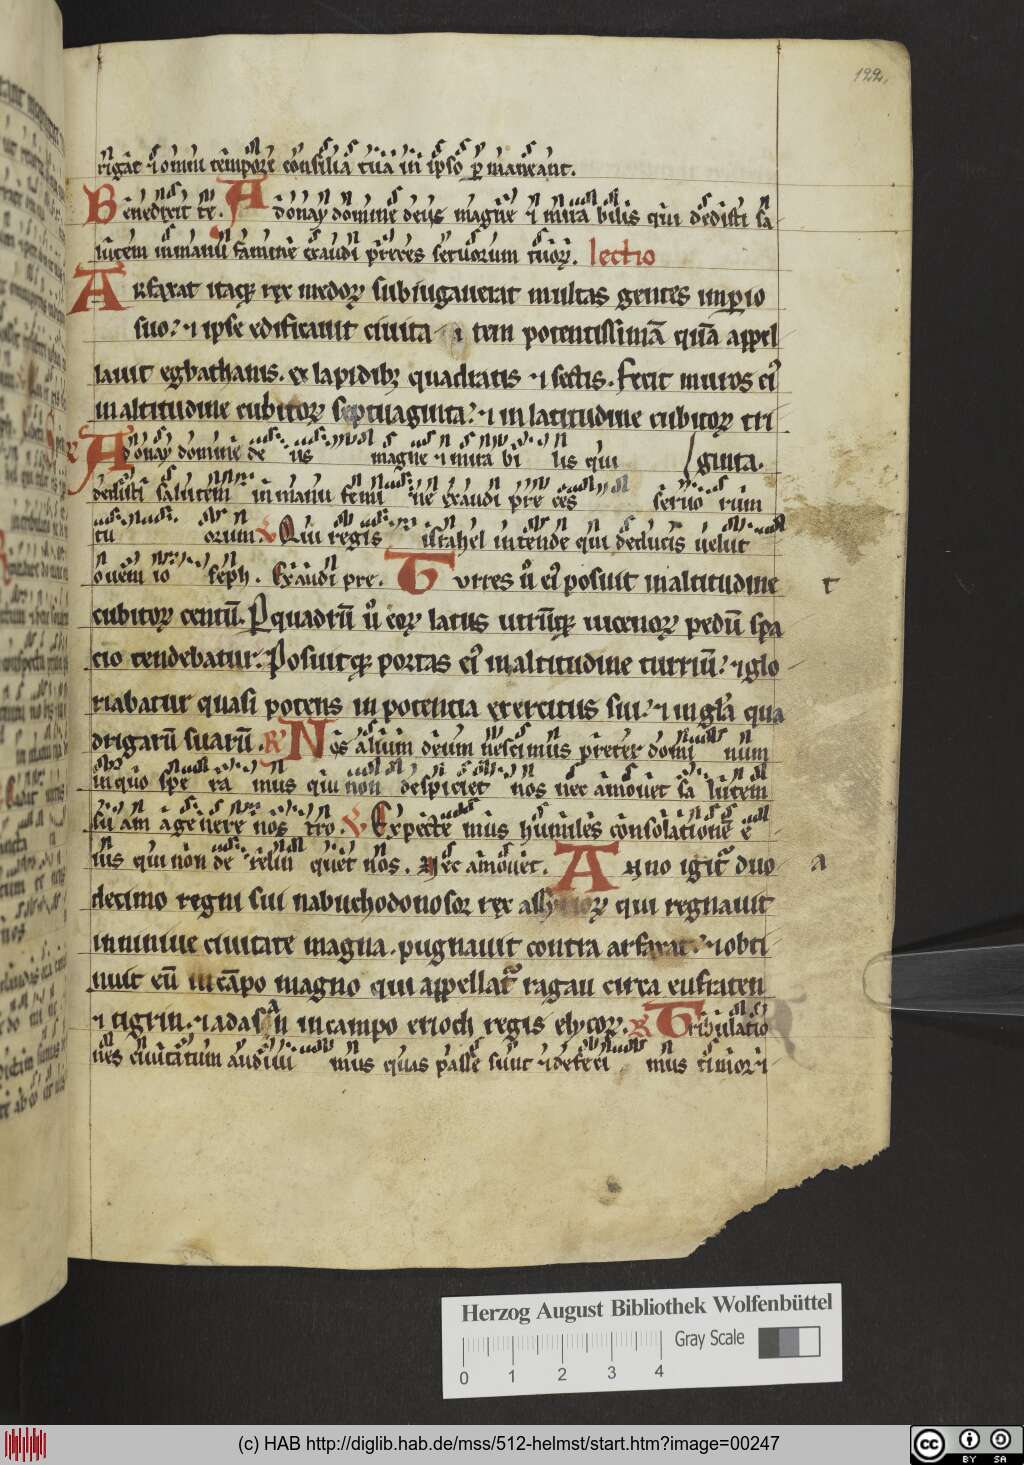 122.
rigāt ⁊ omni tempore consilia tua in ipso ꝑmaneant.
Benedixit te. Adonay domine deus magne ⁊ mirabilis qui dedisti sa
lutem in manu femine exaudi preces seruorum tuoꝝ. lectio
Arfaxat itaqꝫ rex medoꝝ subiugauerat multas gentes impio
suo. ⁊ ipse edificauit ciuita tem potentissimā quā appel
lauit egbathanis. ex lapidibꝫ quadratis ⁊ sectis. Fecit muros eiꝰ
in altitudine cubitoꝝ septuaginta. ⁊ in latitudine cubitoꝝ tri
Adonay domine de us magne ⁊ mira bi lis qui ginta.
dedisti salutem in manu femi ne exaudi pre ces seruo rum
tu orum Qui regis israhel intende qui deducis uelut
ouem io seph. Exaudi pre. Turres u͛ eiꝰ posuit in altitudine t
cubitoꝝ centū. Ꝑ quadrū u͛ eoꝝ latus utrūqꝫ uicenoꝝ pedū spa
cio tendebatur. Posuitqꝫ portas eiꝰ in altitudine turriū. ⁊ glo
riabatur quasi potens in potentia exercitus sui. ⁊ in gl̄a qua
drigarū suarū. R Nos alium deum nescimus preter domi num
in quo spe ra mus qui non despiciet nos nec amouet salutem
su am a genere nos tro. V Expecte mus humiles consolatione e
ius qui non de relin quet nos. Nec amouet. Anno igit͛ duo a
decimo regni sui nabuchodonosor rex assyrioꝝ qui regnauit
in niniue ciuitate magna. pugnauit contra arfaxat. ⁊ obti
nuit eū in cāpo magno qui appellat͛ ragau circa eufraten
⁊ tigrin. ⁊ iadasan in campo erioch regis elycoꝝ. R Tribulatio
nes ciuitatum audiui mus quas passe sunt ⁊ defeci mus timor ⁊
Herzog August Bibliothek Wolfenbüttel
Gray Scale
0 1 2 3 4
(c) HAB http://diglib.hab.de/mss/512-helmst/start.htm?image=00247
cc BY SA